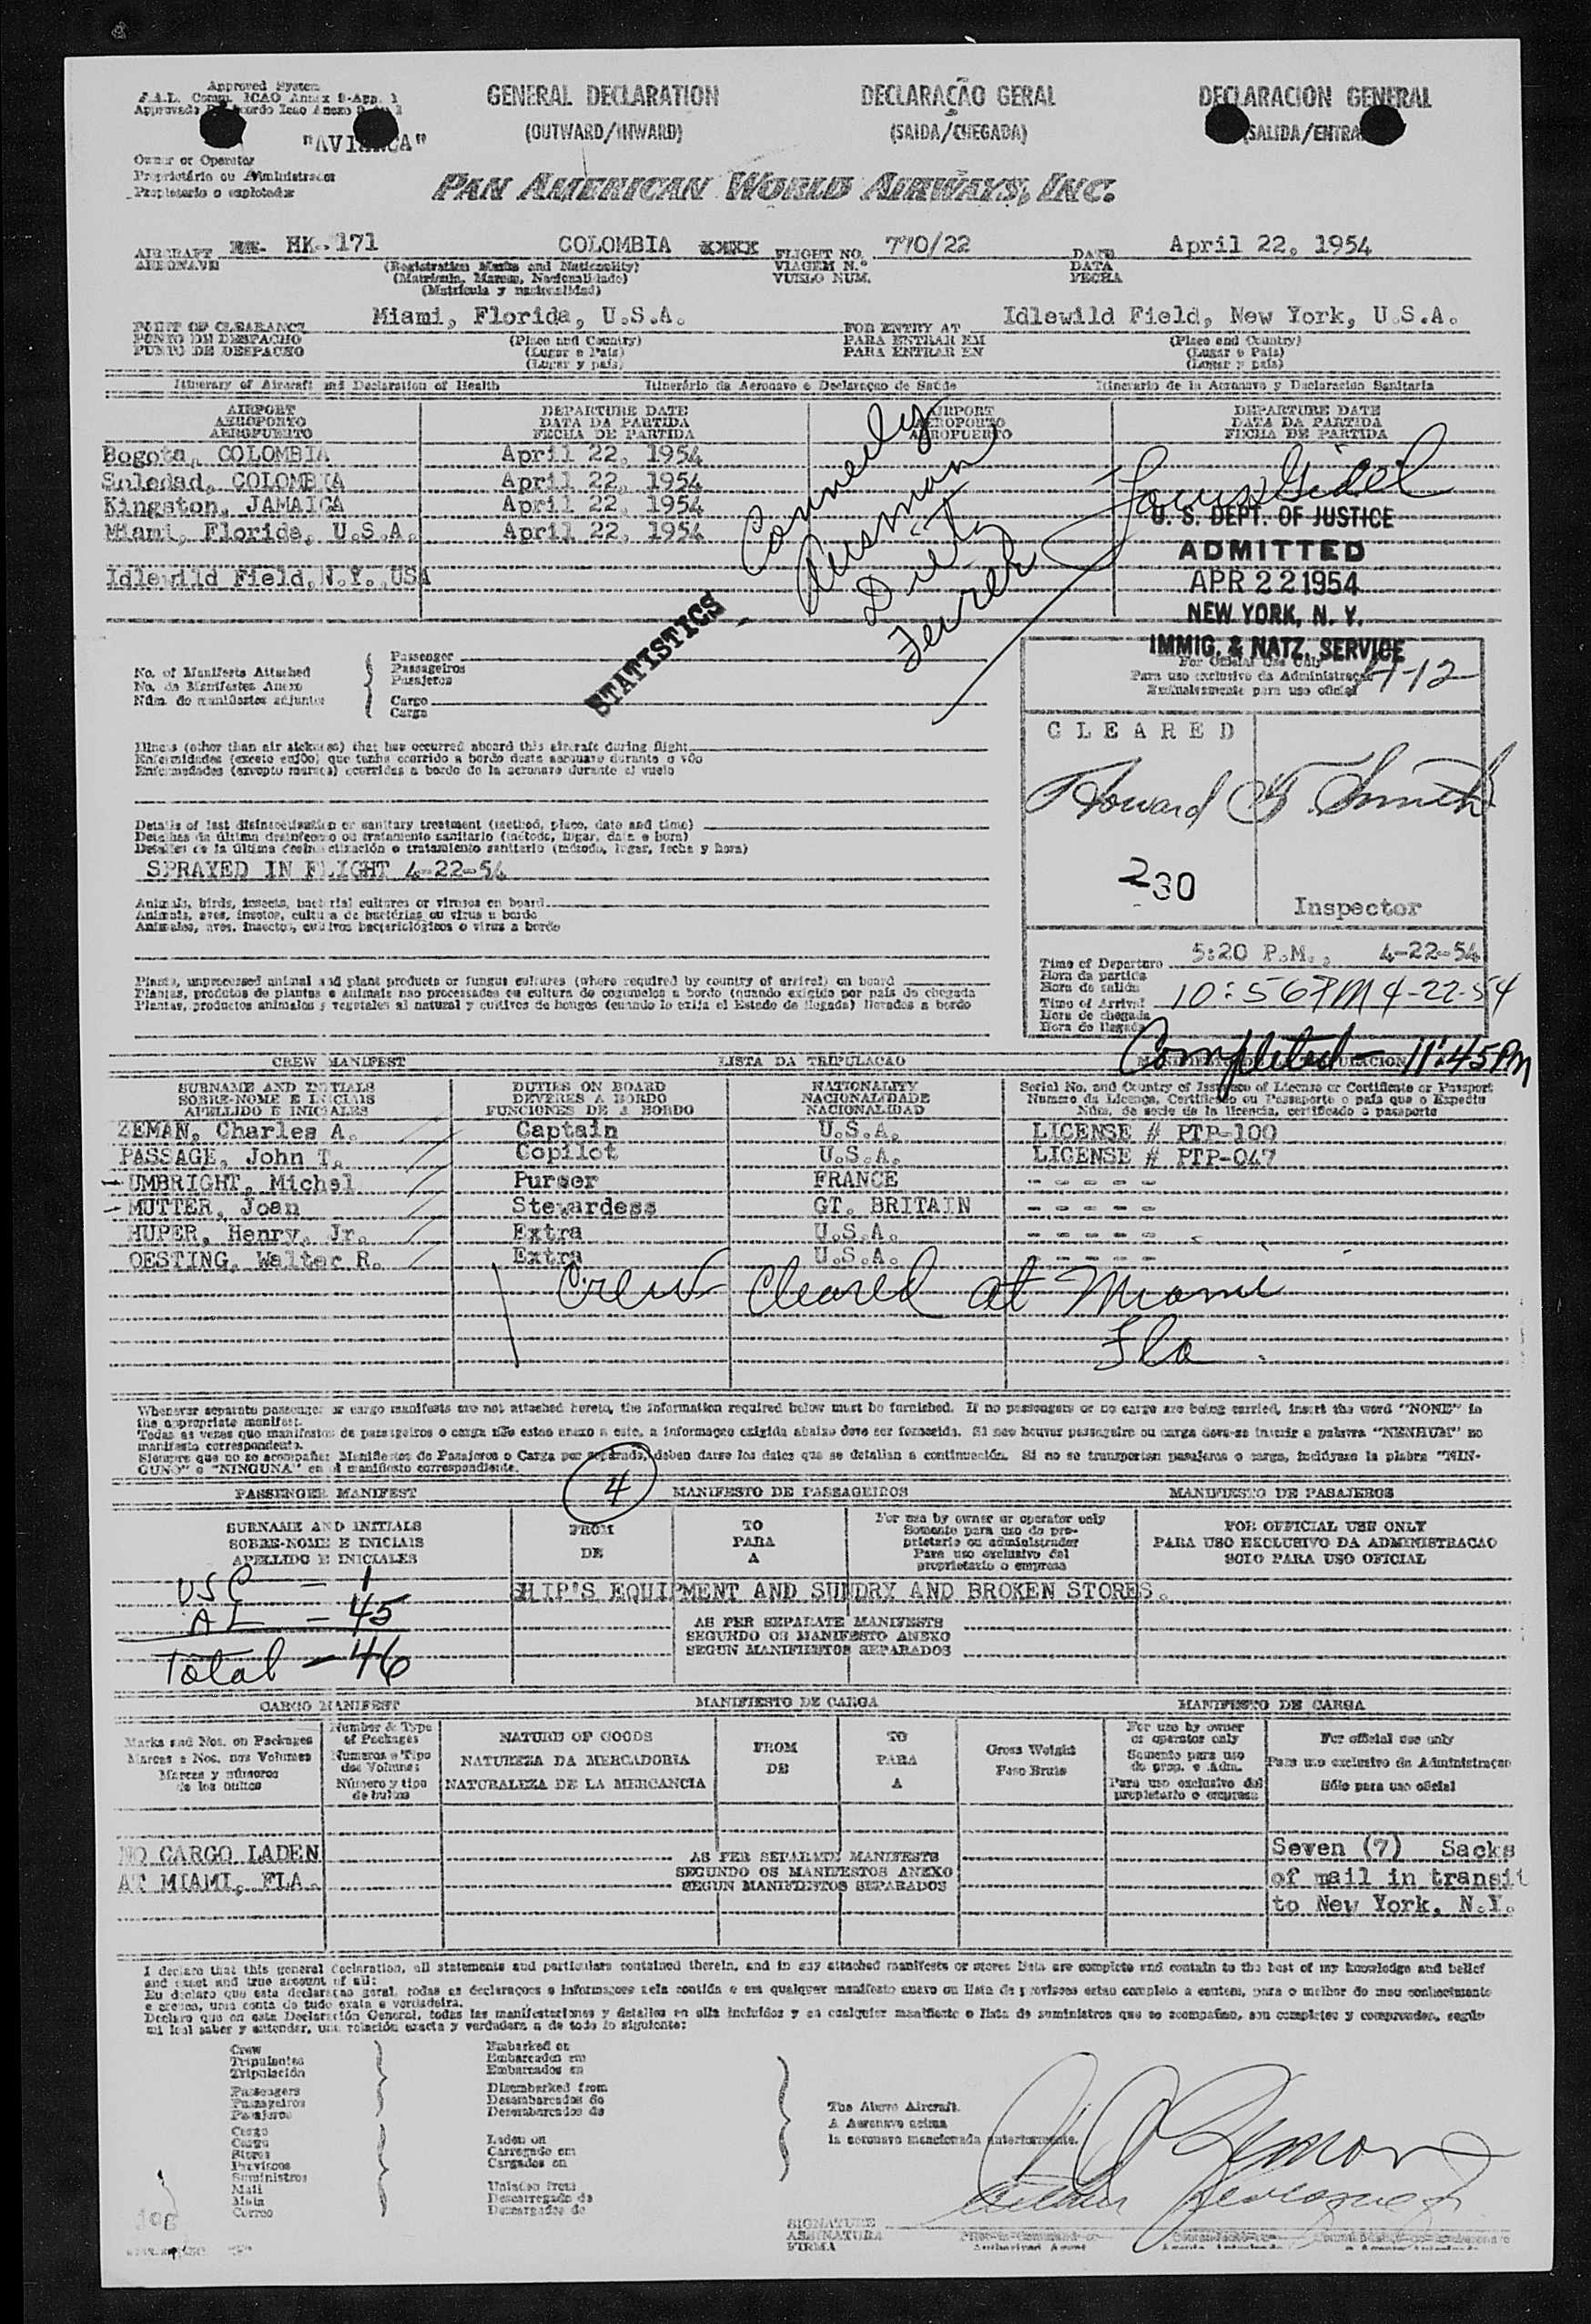 Approved System
F.A.L. Comm. ICAO Annex 9-App. 1
"AVIANCA"
Owner or Operator
Proprietário ou Administrador
Propietario o explotador
GENERAL DECLARATION
(OUTWARD/INWARD)
DECLARAÇÃO GERAL
(SAIDA/CHEGADA)
DECLARACION GENERAL
(SALIDA/ENTRADA)
PAN AMERICAN WORLD AIRWAYS, INC.
AIRCRAFT HK-171 COLOMBIA XXXX FLIGHT NO. 770/22 DATE April 22, 1954
AERONAVE (Registration Marks and Nationality) VIAGEM N.º DATA
(Matricula, Marcas, Nacionalidade) VUELO NUM. FECHA
(Matricula y nacionalidad)
POINT OF CLEARANCE Miami, Florida, U.S.A. FOR ENTRY AT Idlewild Field, New York, U.S.A.
PONTO DE DESPACHO (Place and Country) PARA ENTRAR EM (Place and Country)
PUNTO DE DESPACHO (Lugar e Pais) PARA ENTRAR EN (Lugar e Pais)
(Lugar y pais) (Lugar y pais)
Itinerary of Aircraft and Declaration of Health Itinerário da Aeronave e Declaraçao de Saúde Itinerario de la Aeronave y Declaracion Sanitaria
AIRPORT DEPARTURE DATE AIRPORT DEPARTURE DATE
AEROPORTO DATA DA PARTIDA AEROPORTO DATA DA PARTIDA
AEROPUERTO FECHA DE PARTIDA AEROPUERTO FECHA DE PARTIDA
Bogota, COLOMBIA April 22, 1954
Soledad, COLOMBIA April 22, 1954
Kingston, JAMAICA April 22, 1954
Miami, Florida, U.S.A. April 22, 1954
Idlewild Field, N.Y., USA
Dietz
STATISTICS
U. S. DEPT. OF JUSTICE
ADMITTED
APR 22 1954
NEW YORK, N. Y.
IMMIG. & NATZ. SERVICE
No. of Manifests Attached
No. de Manifestos Anexo
Núm. de manifiestos adjuntos
Passenger
Passageiros
Pasajeros
Cargo
Carga
For Official Use Only
Para uso exclusivo da Administraçao
Exclusivamente para uso oficial
4-12
CLEARED
Howard G. Smith
230
Inspector
Illness (other than air sickness) that has occurred aboard this aircraft during flight
Enfermidades (exceto enjôo) que tenha ocorrido a bordo desta aeronave durante o vôo
Enfermedades (excepto mareos) ocurridas a bordo de la aeronave durante el vuelo
Details of last disinsectization or sanitary treatment (method, place, date and time)
Detalhes da última desinfeccao ou tratamento sanitario (método, lugar, data e hora)
Detalles de la última desinsectización o tratamiento sanitario (método, lugar, fecha y hora)
SPRAYED IN FLIGHT 4-22-54
Animals, birds, insects, bacterial cultures or viruses on board
Animais, aves, insetos, cultura de bactérias ou virus a bordo
Animales, aves, insectos, cultivos bacteriológicos o virus a bordo
Plants, unprocessed animal and plant products or fungus cultures (where required by country of arrival) on board
Plantas, produtos de plantas e animais nao processados ou cultura de cogumelos a bordo (quando exigido por pais de chegada
Plantas, productos animales y vegetales al natural y cultivos de hongos (cuando lo exija el Estado de llegada) llevados a bordo
Time of Departure 5:20 P.M., 4-22-54
Hora da partida
Hora de salida
Time of Arrival 10:56PM 4-22-54
Hora de chegada
Hora de llegada
Completed - 11:45PM
CREW MANIFEST LISTA DA TRIPULACAO
SURNAME AND INITIALS DUTIES ON BOARD NATIONALITY Serial No. and Country of Issuance of License or Certificate or Passport
SOBRE-NOME E INICIAIS DEVERES A BORDO NACIONALIDADE Numero da Licença, Certificado ou Passaporte o pais que o Expediu
APELLIDO E INICIALES FUNCIONES DE A BORDO NACIONALIDAD Núm. de serie de la licencia, certificado o pasaporte
ZEMAN, Charles A. Captain U.S.A. LICENSE # PTP-100
PASSAGE, John T. Copilot U.S.A. LICENSE # PTP-047
- UMBRIGHT, Michel Purser FRANCE - - - - -
- MUTTER, Joan Stewardess GT. BRITAIN - - - - -
HUPER, Henry, Jr. Extra U.S.A. - - - - -
OESTING, Walter R. Extra U.S.A. - - - - -
Crew Cleared at Miami
Fla
Whenever separate passenger or cargo manifests are not attached hereto, the information required below must be furnished. If no passengers or no cargo are being carried, insert the word "NONE" in
the appropriate manifest.
Todas as vezes que manifestos de passageiros o carga não estao anexo a este, a informaçao exigida abaixo deve ser fornecida. Si nao houver passageiro ou carga deve-se inserir a palavra "NENHUM" no
manifesto correspondente.
Siempre que no se acompañen Manifiestos de Pasajeros o Carga por separado, deben darse los datos que se detallan a continuación. Si no se transportan pasajeros o carga, inclúyase la plabra "NIN-
GUNO" o "NINGUNA" en el manifiesto correspondiente.
4
PASSENGER MANIFEST MANIFESTO DE PASSAGEIROS MANIFIESTO DE PASAJEROS
SURNAME AND INITIALS FROM TO For use by owner or operator only FOR OFFICIAL USE ONLY
SOBRE-NOME E INICIAIS DE PARA Somente para uso do pro- PARA USO EXCLUSIVO DA ADMINISTRACAO
APELLIDO E INICIALES A prietario ou administrador SOLO PARA USO OFICIAL
Para uso exclusivo del
proprietario o empresa
USC - 1
AL - 45
Total - 46
SHIP'S EQUIPMENT AND SUNDRY AND BROKEN STORES.
AS PER SEPARATE MANIFESTS
SEGUNDO OS MANIFESTO ANEXO
SEGUN MANIFIESTOS SEPARADOS
CARGO MANIFEST MANIFIESTO DE CARGA MANIFESTO DE CARGA
Marks and Nos. on Packages
Marcas e Nos. nos Volumes
Marcas y números
de los bultos
Number & Type
of Packages
Numeros e Tipo
dos Volumes
Número y tipo
de bultos
NATURE OF GOODS
NATUREZA DA MERCADORIA
NATURALEZA DE LA MERCANCIA
FROM
DE
TO
PARA
A
Gross Weight
Peso Bruto
For use by owner
or operator only
Somente para uso
do prop. e Adm.
Para uso exclusivo del
propietario o empresa
For official use only
Para uso exclusivo da Administraçao
Sólo para uso oficial
NO CARGO LADEN
AT MIAMI, FLA.
AS PER SEPARATE MANIFESTS
SEGUNDO OS MANIFESTOS ANEXO
SEGUN MANIFIESTOS SEPARADOS
Seven (7) Sacks
of mail in transit
to New York, N.Y.
I declare that this general declaration, all statements and particulars contained therein, and in any attached manifests or stores lists are complete and contain to the best of my knowledge and belief
and exact and true account of all:
Eu declaro que esta declaraçao geral, todas as declaraçoes e informaçoes nela contida e em qualquer manifesto anexo ou lista de provisoes estao completo a contem, para o melhor do meu conhecimento
e crença, uma conta de tudo exata e verdadeira.
Declaro que en esta Declaración General, todas las manifestaciones y detalles en ella incluidos y en cualquier manifiesto o lista de suministros que se acompañan, son completos y comprenden, según
mi leal saber y entender, una relación exacta y verdadera a de todo lo siguiente:
Crew
Tripulantes
Tripulación
Passengers
Passageiros
Pasajeros
Cargo
Carga
Stores
Previsoes
Suministros
Mail
Mala
Correo
Embarked on
Embarcados em
Embarcados en
Disembarked from
Desembarcados de
Desembarcados de
Laden on
Carregado em
Cargados en
Unladen from
Descarregado de
Descargados de
The Above Aircraft.
A Aeronave acima
la aeronave mencionada anteriormente.
SIGNATURE
ASSINATURA
FIRMA